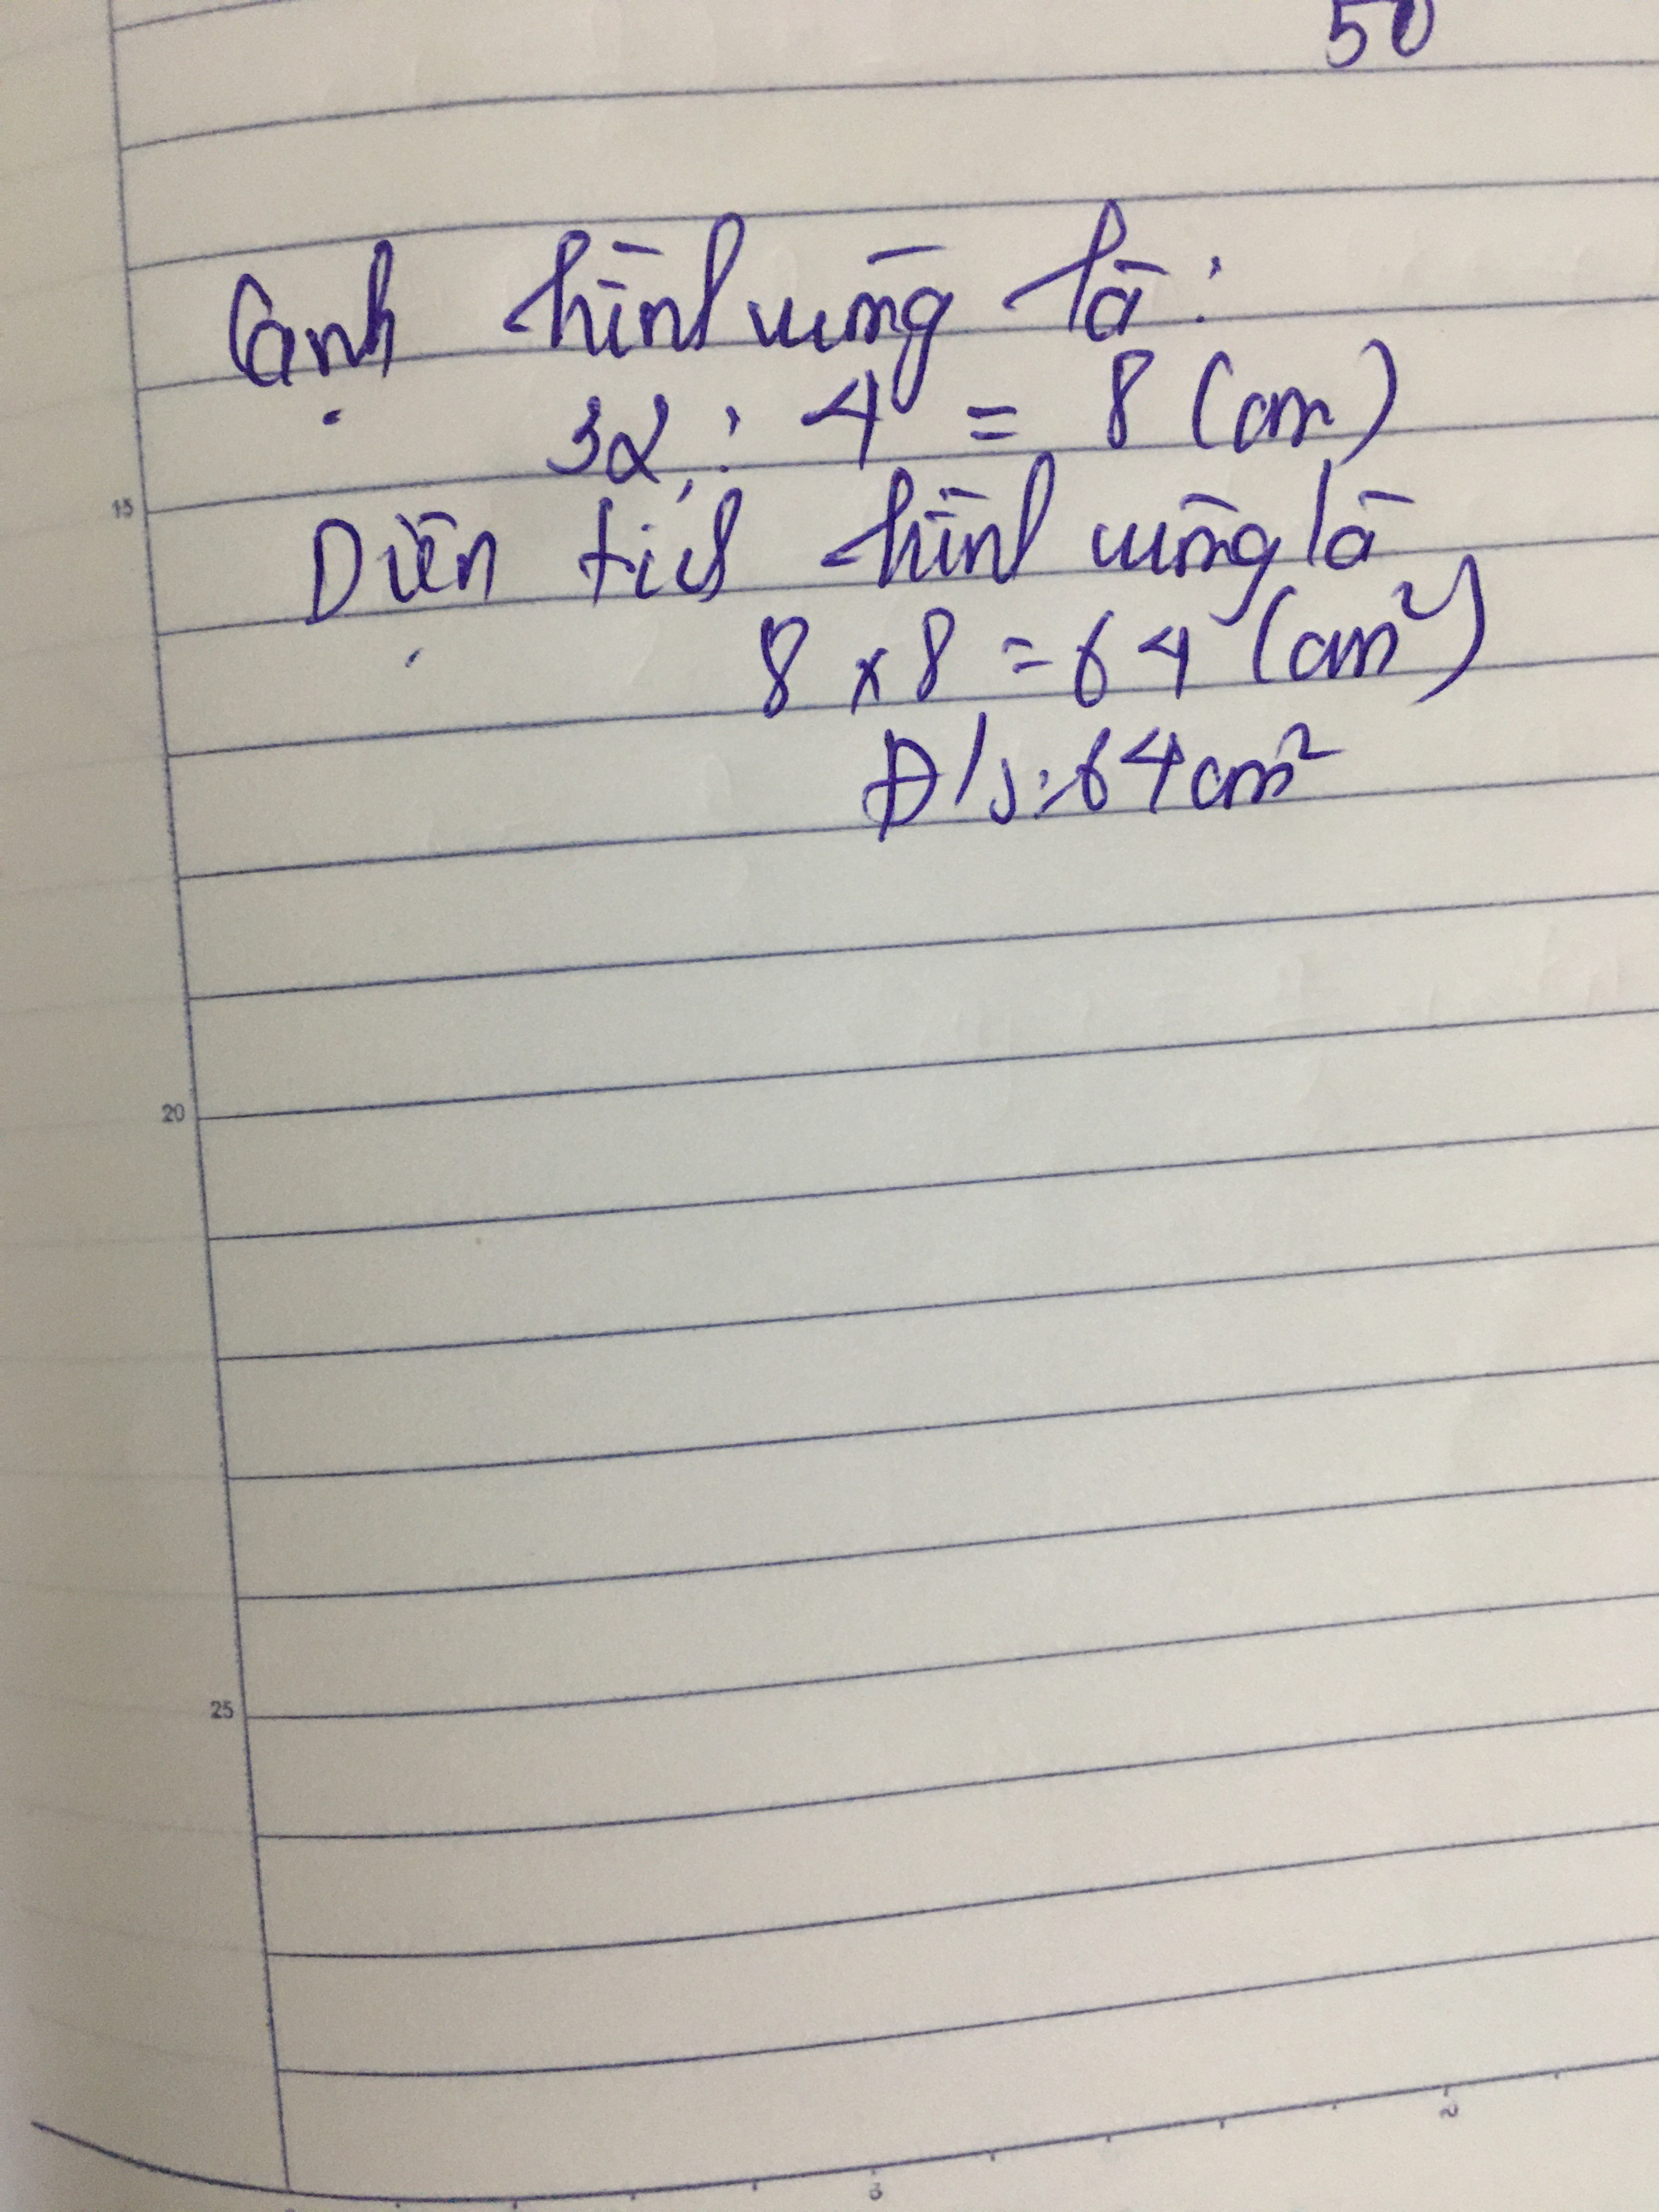 50
Cạnh hình vuông là:
32 : 4 = 8 (cm)
15
Diện tích hình vuông là
8 x 8 = 64 (cm²)
Đ/s: 64 cm²
20
25
2
3